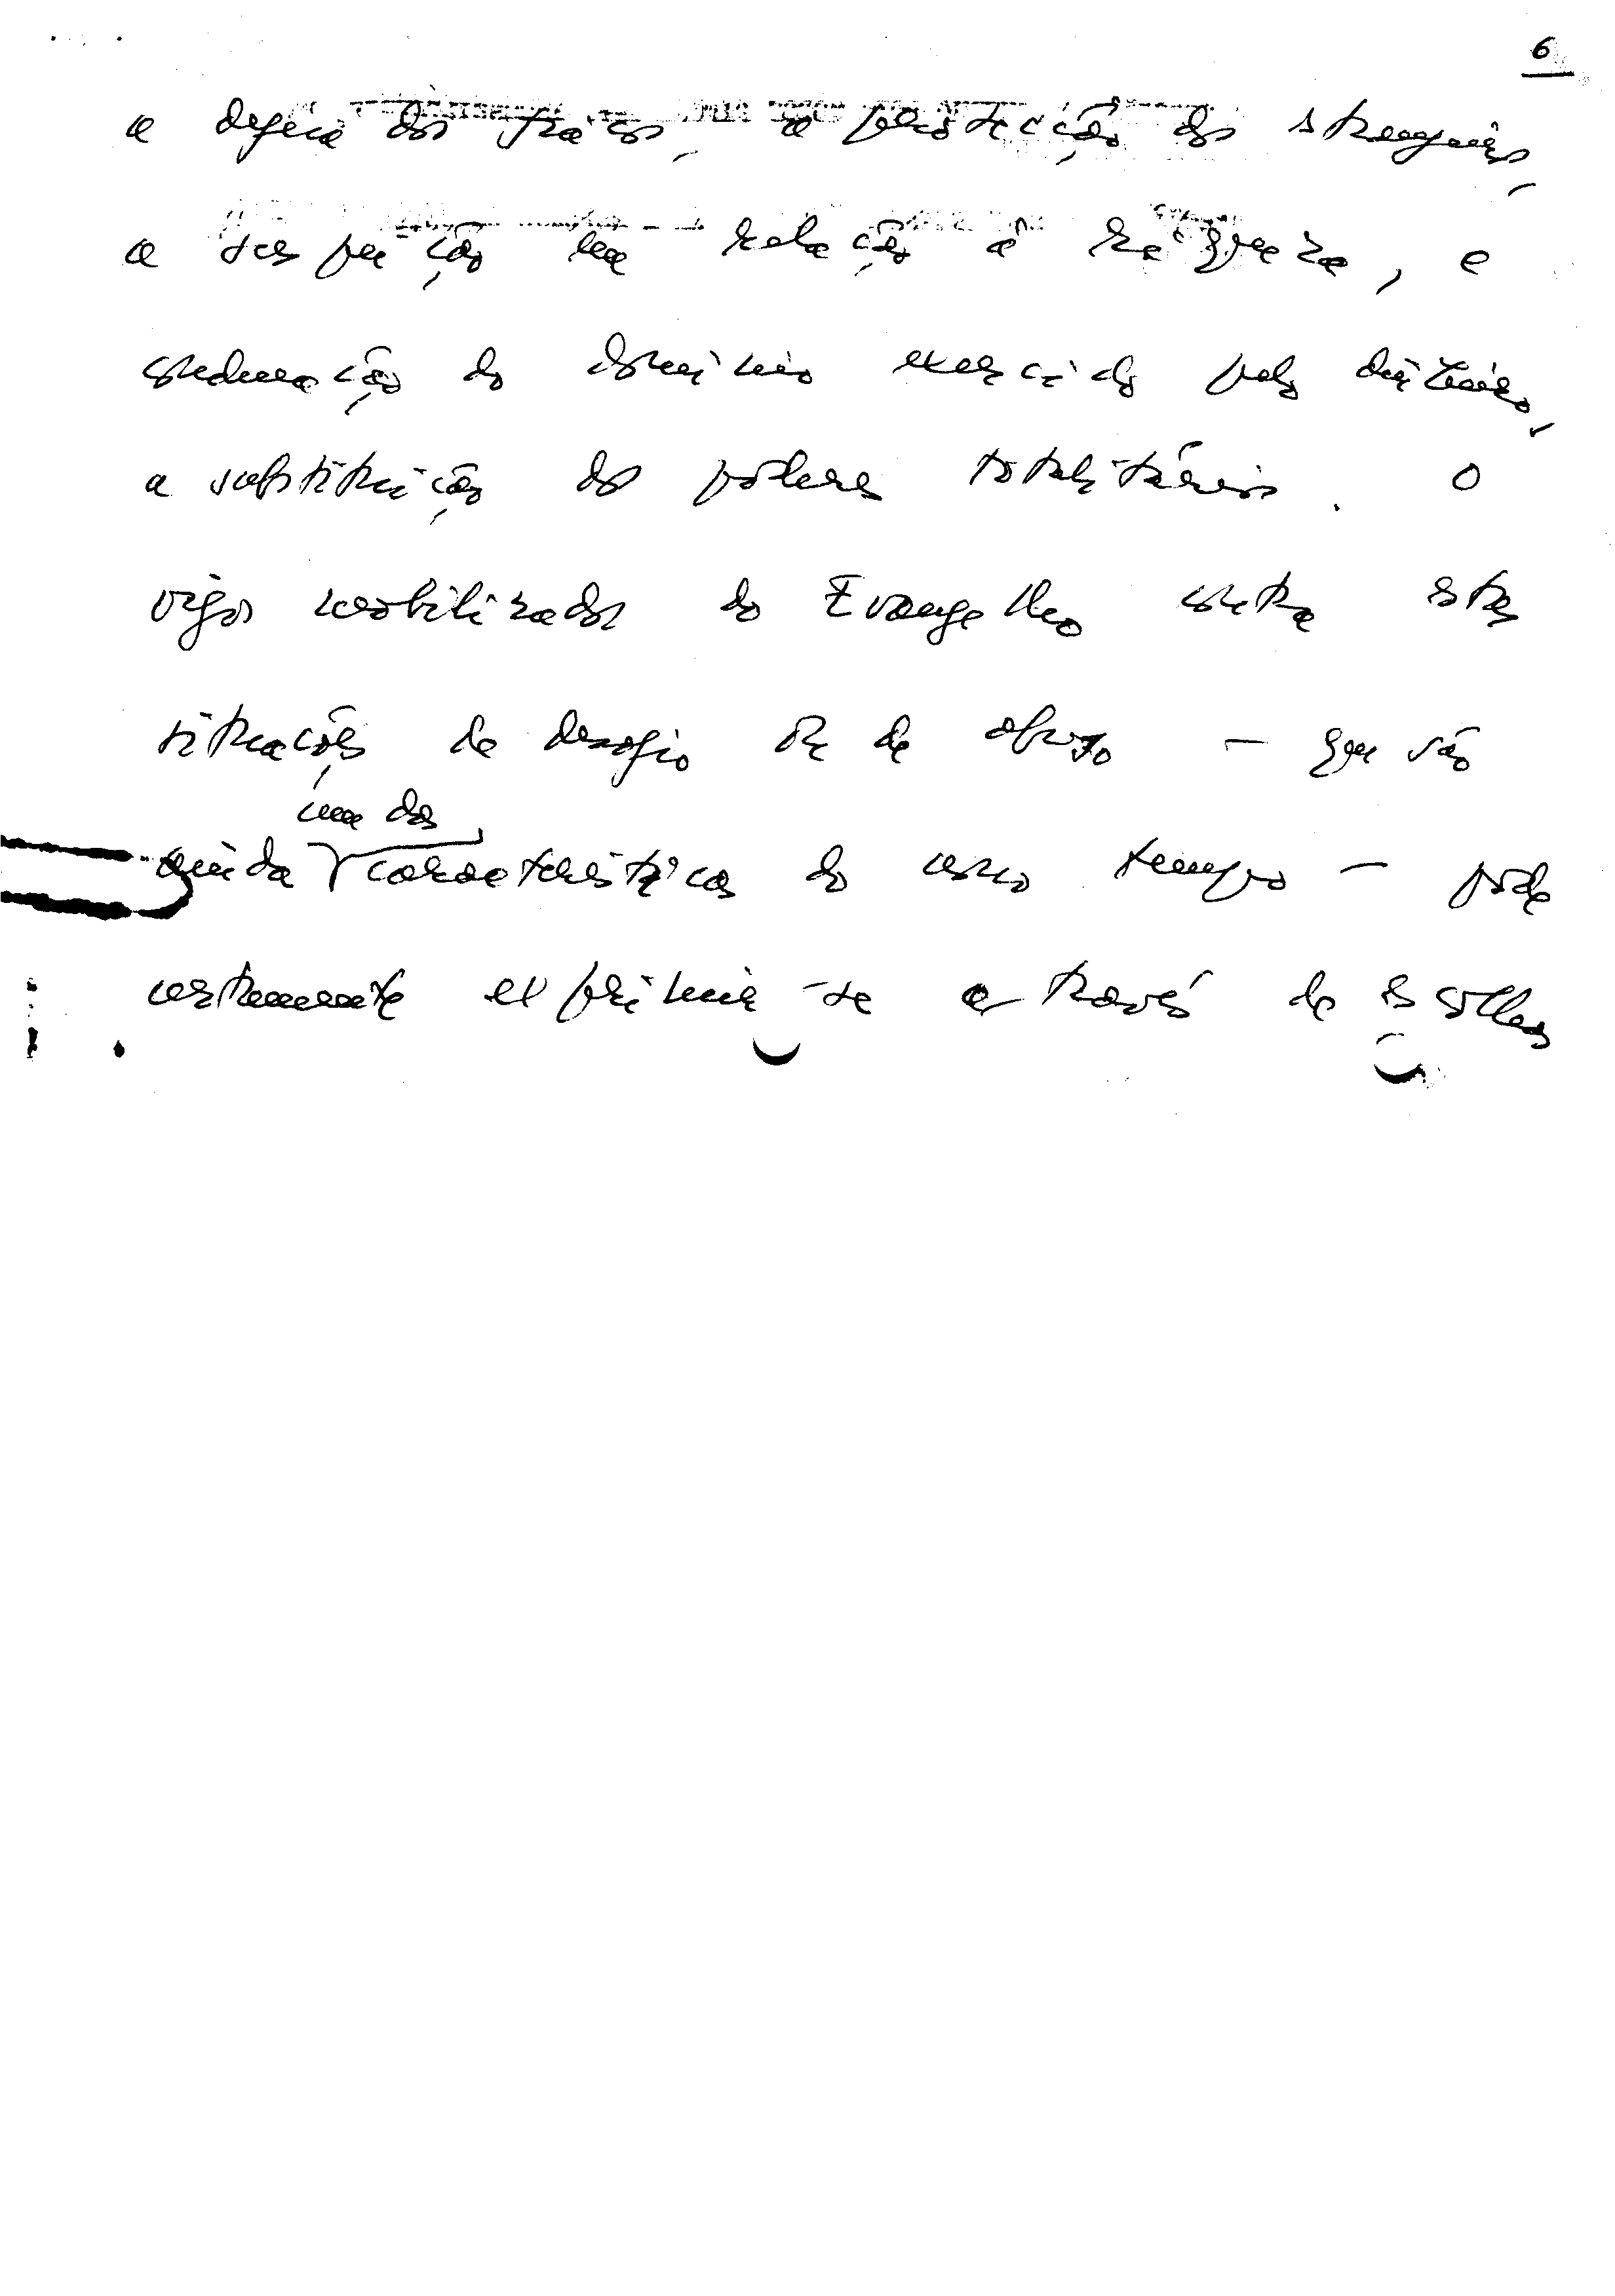 6
a defesa dos fracos, a protecção dos estrangeiros,
a suspeição em relação à riqueza, e
condenação do domínio exercido pelo dinheiro,
a substituição dos poderes totalitários. O
vigor mobilizador do Evangelho contra estas
situações de desafio ou de abuso — que são
uma das
ainda características do nosso tempo — pode
certamente exprimir-se através de escolhas